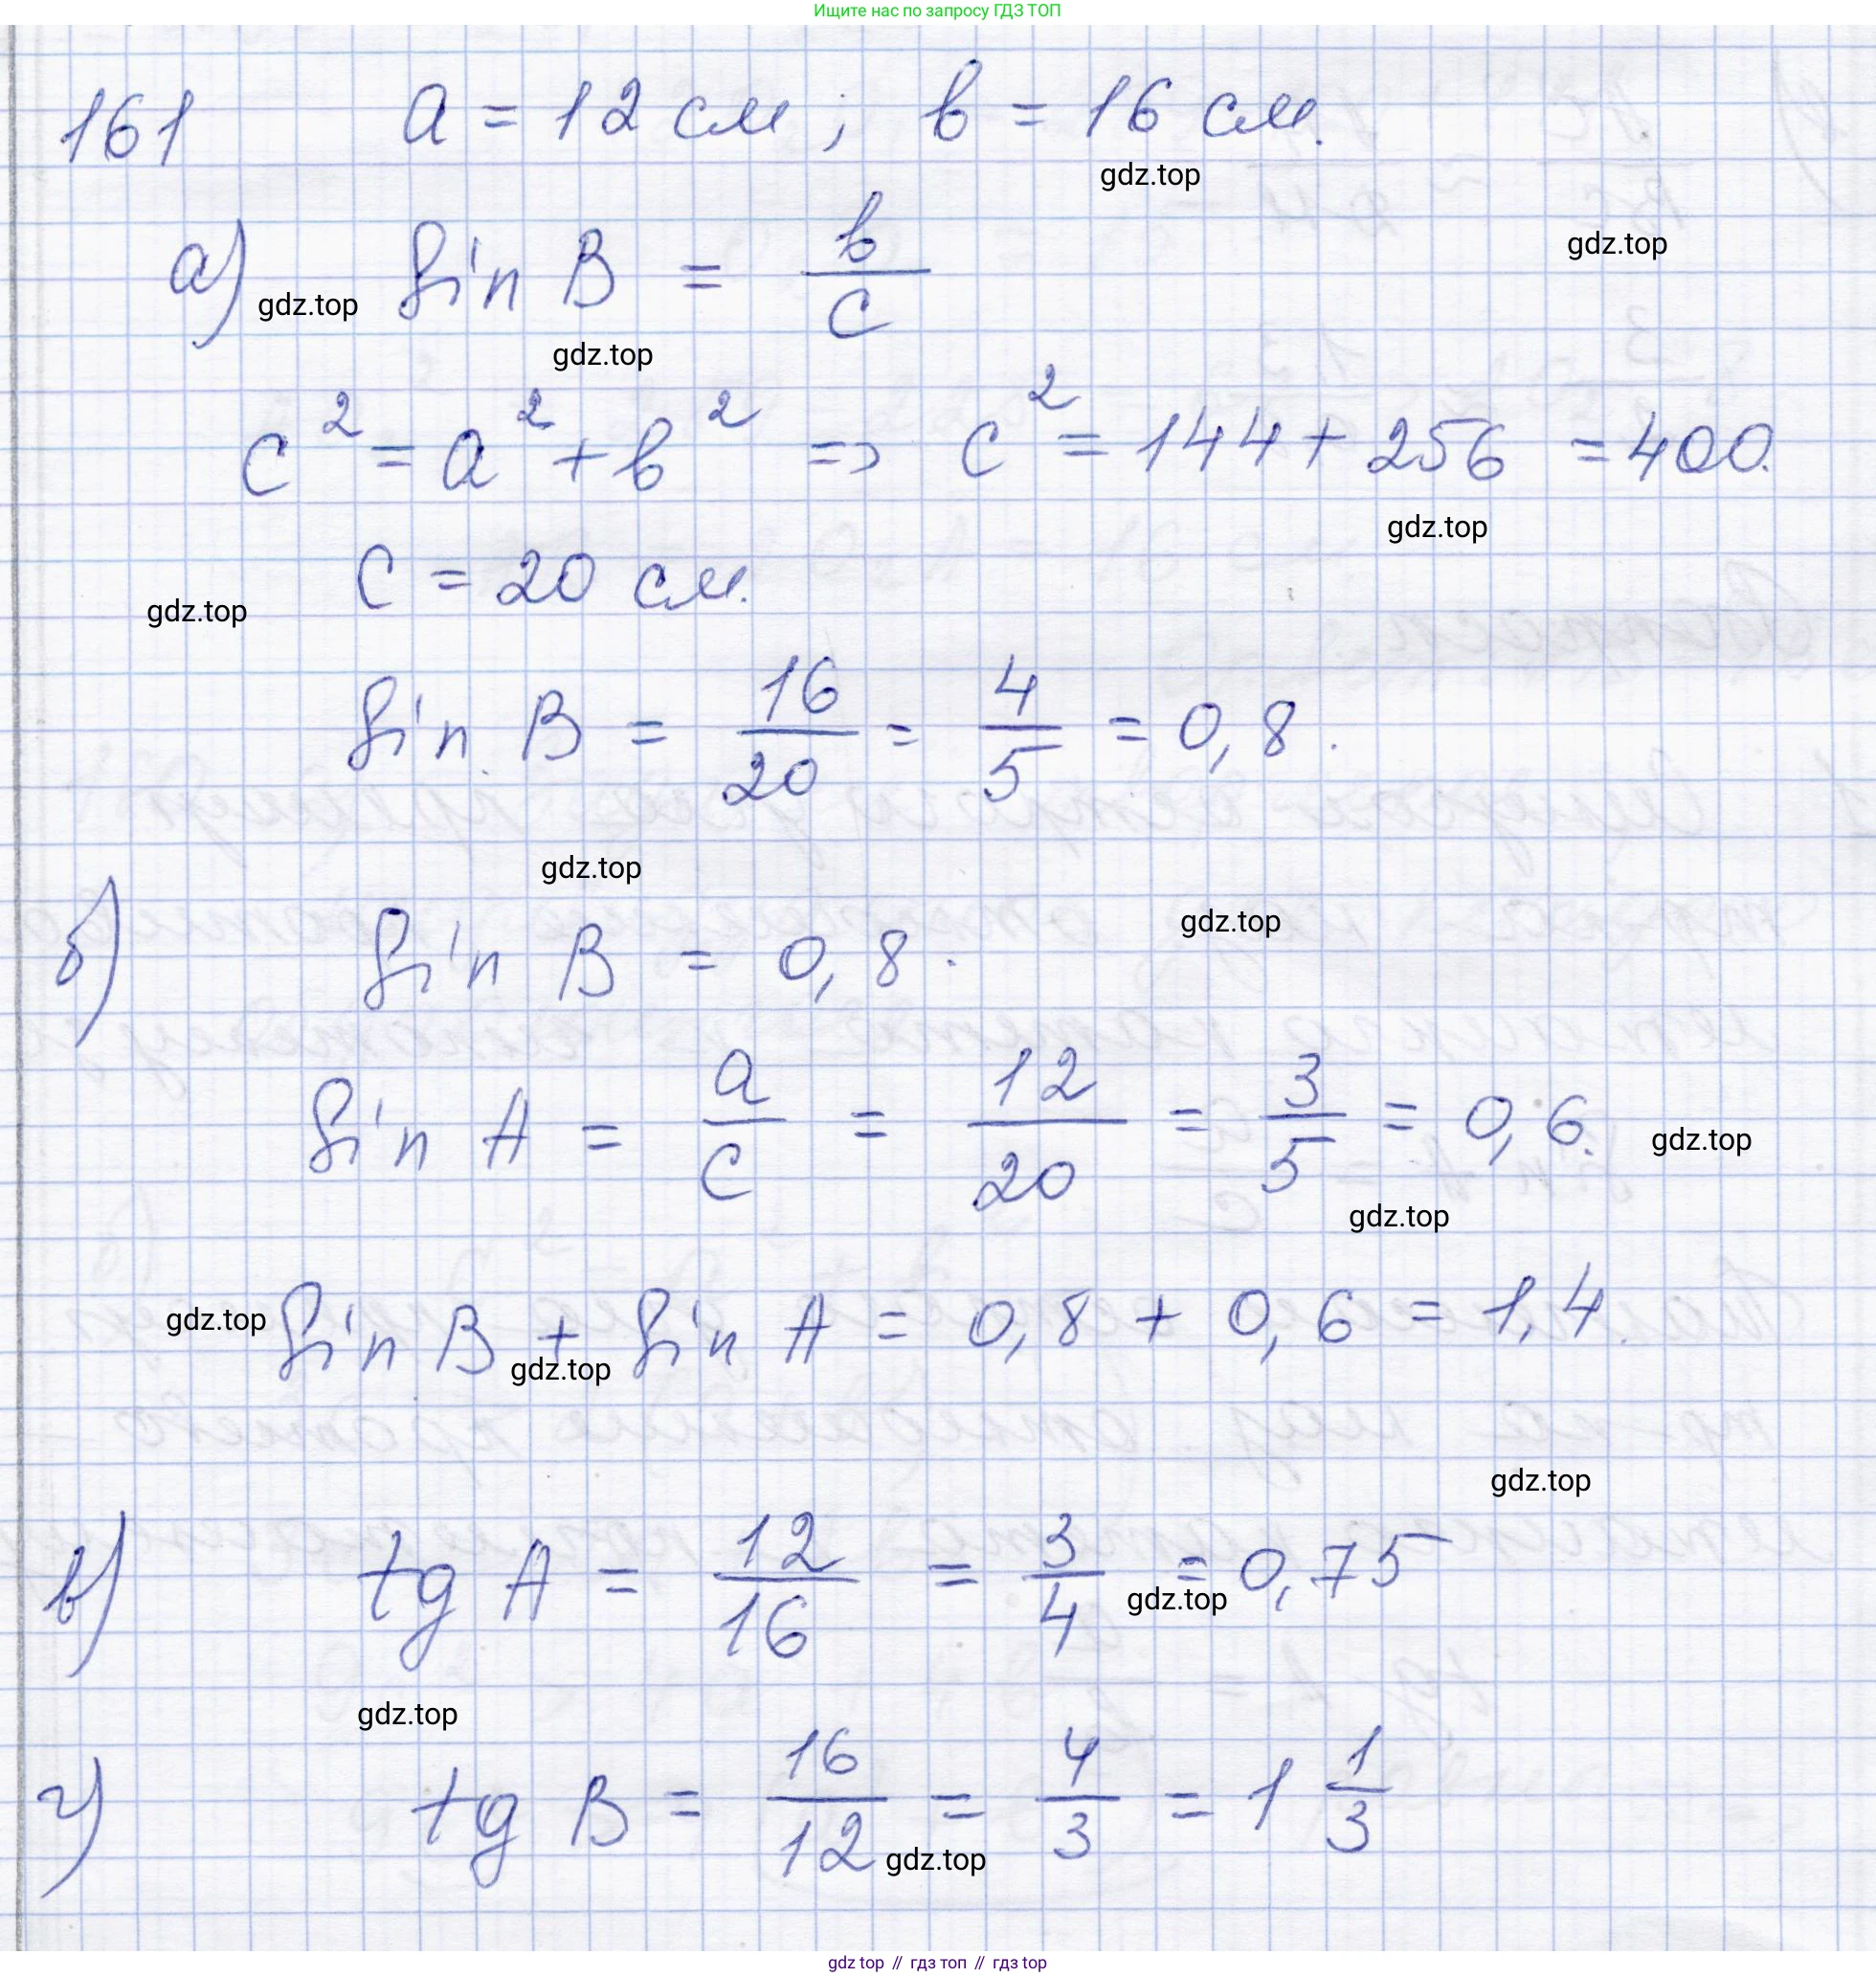 Ищите нас по запросу ГДЗ ТОП
161 a = 12 см ; b = 16 см.
gdz.top
gdz.top
а) sin B = b/c
gdz.top
gdz.top
c² = a² + b² => c² = 144 + 256 = 400.
gdz.top
c = 20 см.
gdz.top
sin B = 16/20 = 4/5 = 0,8.
gdz.top
gdz.top
б) sin B = 0,8.
sin A = a/c = 12/20 = 3/5 = 0,6.
gdz.top
gdz.top
gdz.top
sin B + sin A = 0,8 + 0,6 = 1,4.
gdz.top
gdz.top
в) tg A = 12/16 = 3/4 = 0,75
gdz.top
gdz.top
г) tg B = 16/12 = 4/3 = 1 1/3
gdz.top
gdz top // гдз топ // гдз top